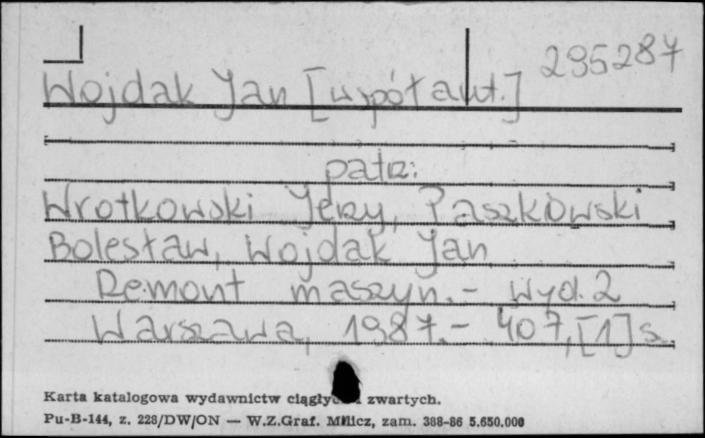 295287
Wojdak Jan [współaut.]
patrz:
Wrotkowski Jerzy, Paszkowski
Bolesław, Wojdak Jan
Remont maszyn. - Wyd. 2
Warszawa, 1987. - 407, [1] s.
Karta katalogowa wydawnictw ciągłych i zwartych.
Pu-B-144, z. 228/DW/ON — W.Z.Graf. Milicz, zam. 388-86 5.650.000